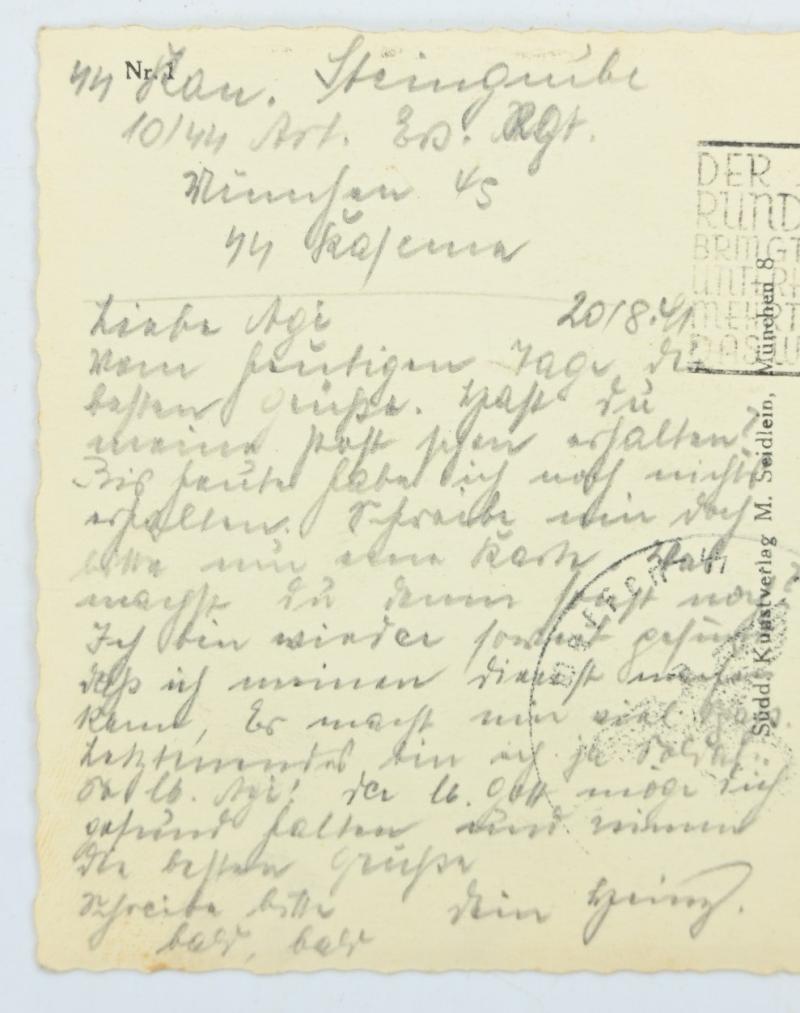 Nr. 1
44 Kan. Steingrube
10/44 Art. Ers. Rgt.
München 45
44 Kaserne
Liebe Agi 20/8.41
Vom heutigen Tage die
besten Grüße. Hast du
meine Post schon erhalten?
Bis heute habe ich noch nichts
erhalten. Schreibe mir doch
bitte nur eine Karte. Was
machst du denn sonst noch?
Ich bin wieder soweit gesund
daß ich meinen Dienst machen
kann, Es macht mir viel Spas.
Letztenendes bin ich ja Soldat.
So lb. Agi! der lb. Gott möge dich
gesund halten und nimm
die besten Grüße
Schreibe bitte dein Heinz.
bald, bald
DER
RUND
BRINGT
UNTERH
MEHRT
DAS
Südd. Kunstverlag M. Seidlein, München 8